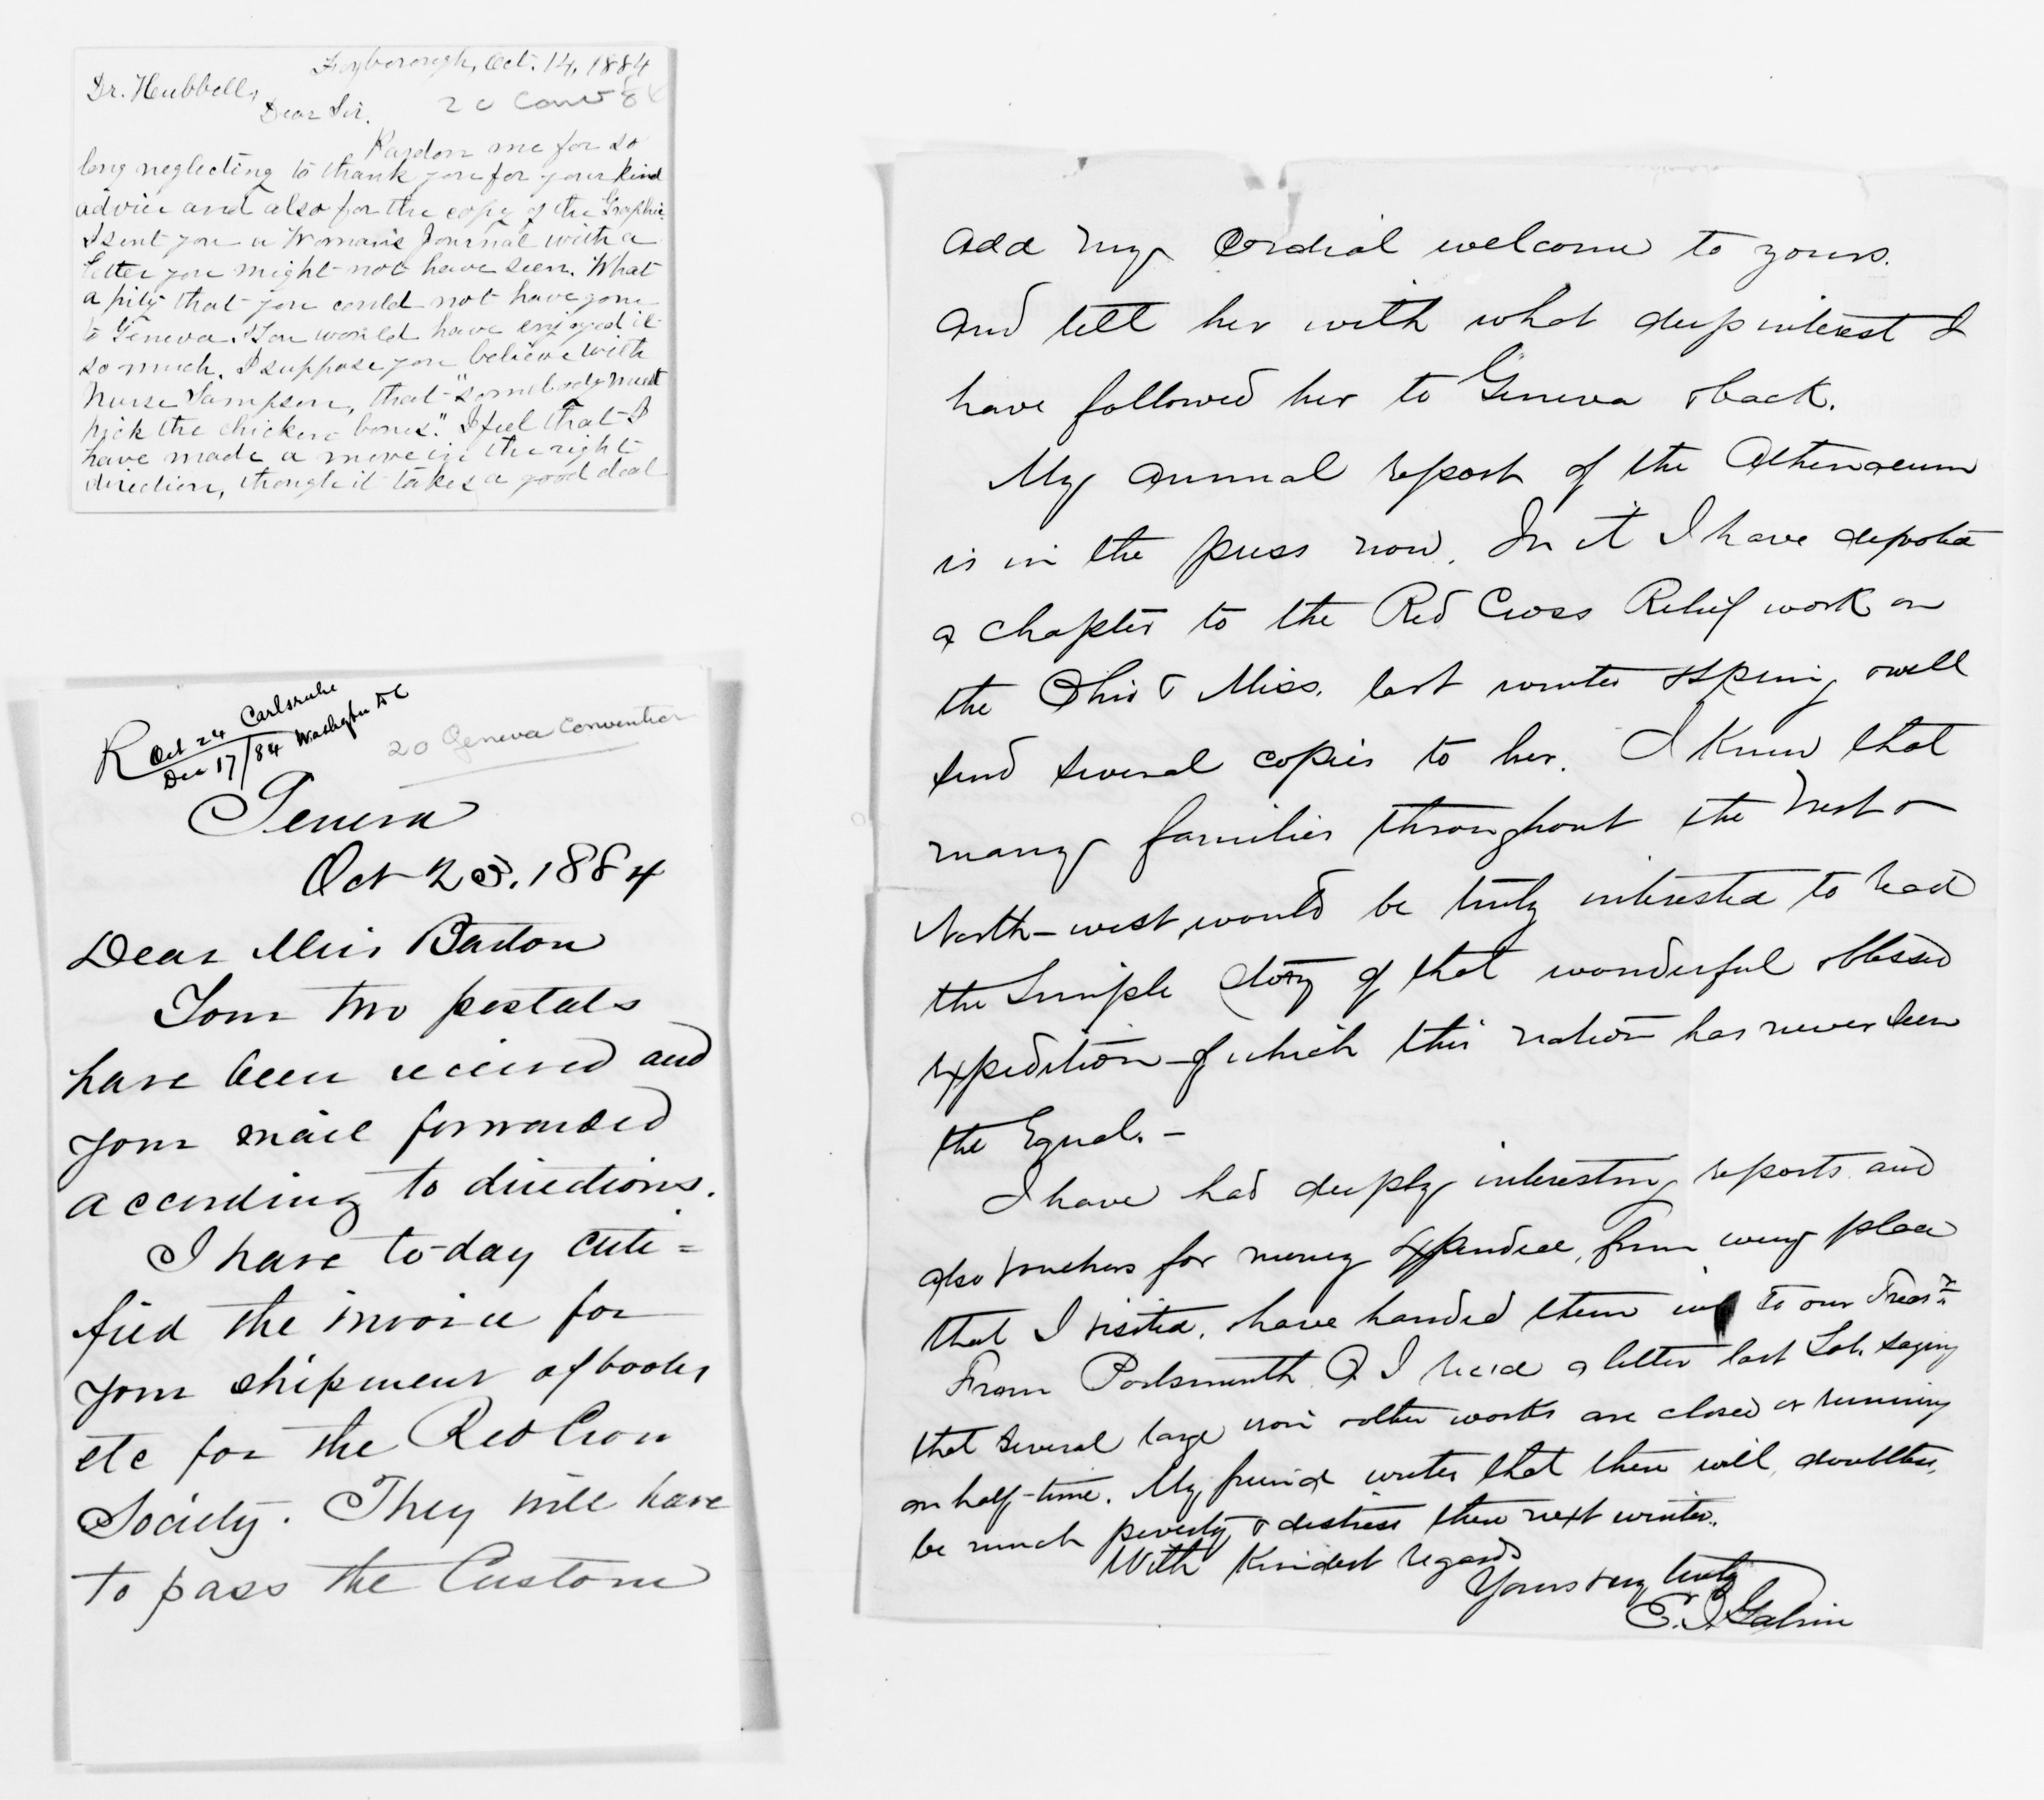 Foxborough, Oct. 14, 1884
Dr. Hubbell,
Dear Sir.
20 Conv 84
Pardon me for so
long neglecting to thank you for your kind
advice and also for the copy of the Graphic.
I sent you a Woman's Journal with a
letter you might not have seen. What
a pity that you could not have gone
to Geneva. You would have enjoyed it
so much. I suppose you believe with
Nurse Sampson, that "somebody must
pick the chicken bones". I feel that I
have made a move in the right
direction, though it takes a good deal
R Oct 24 Carlsruhe
Dec 17/84 Washington D C
20 Geneva Convention
Geneva
Oct 23. 1884
Dear Miss Barton
Your two postals
have been received and
your mail forwarded
according to directions.
I have to-day certi=
fied the invoice for
your shipment of books
etc for the Red Cross
Society. They will have
to pass the Custom
add my cordial welcome to yours.
and tell her with what deep interest I
have followed her to Geneva & back.
My annual report of the Athenaeum
is in the press now. In it I have devoted
a chapter to the Red Cross Relief work on
the Ohio & Miss. last winter & spring & will
send several copies to her. I know that
many families throughout the West &
North-west, would be truly interested to read
the simple story of that wonderful & blessed
expedition - of which this nation has never seen
the Equal. -
I have had deeply interesting reports and
also vouchers for money expended, from every place
that I visited. & have handed them in to our Treasr.
From Portsmouth O I rec'd a letter last Sat. saying
that several large iron & other works are closed or running
on half-time. My friend writes that there will, doubtless,
be much poverty & distress there next winter.
With kindest regards
Yours very truly
E. I. Galvin